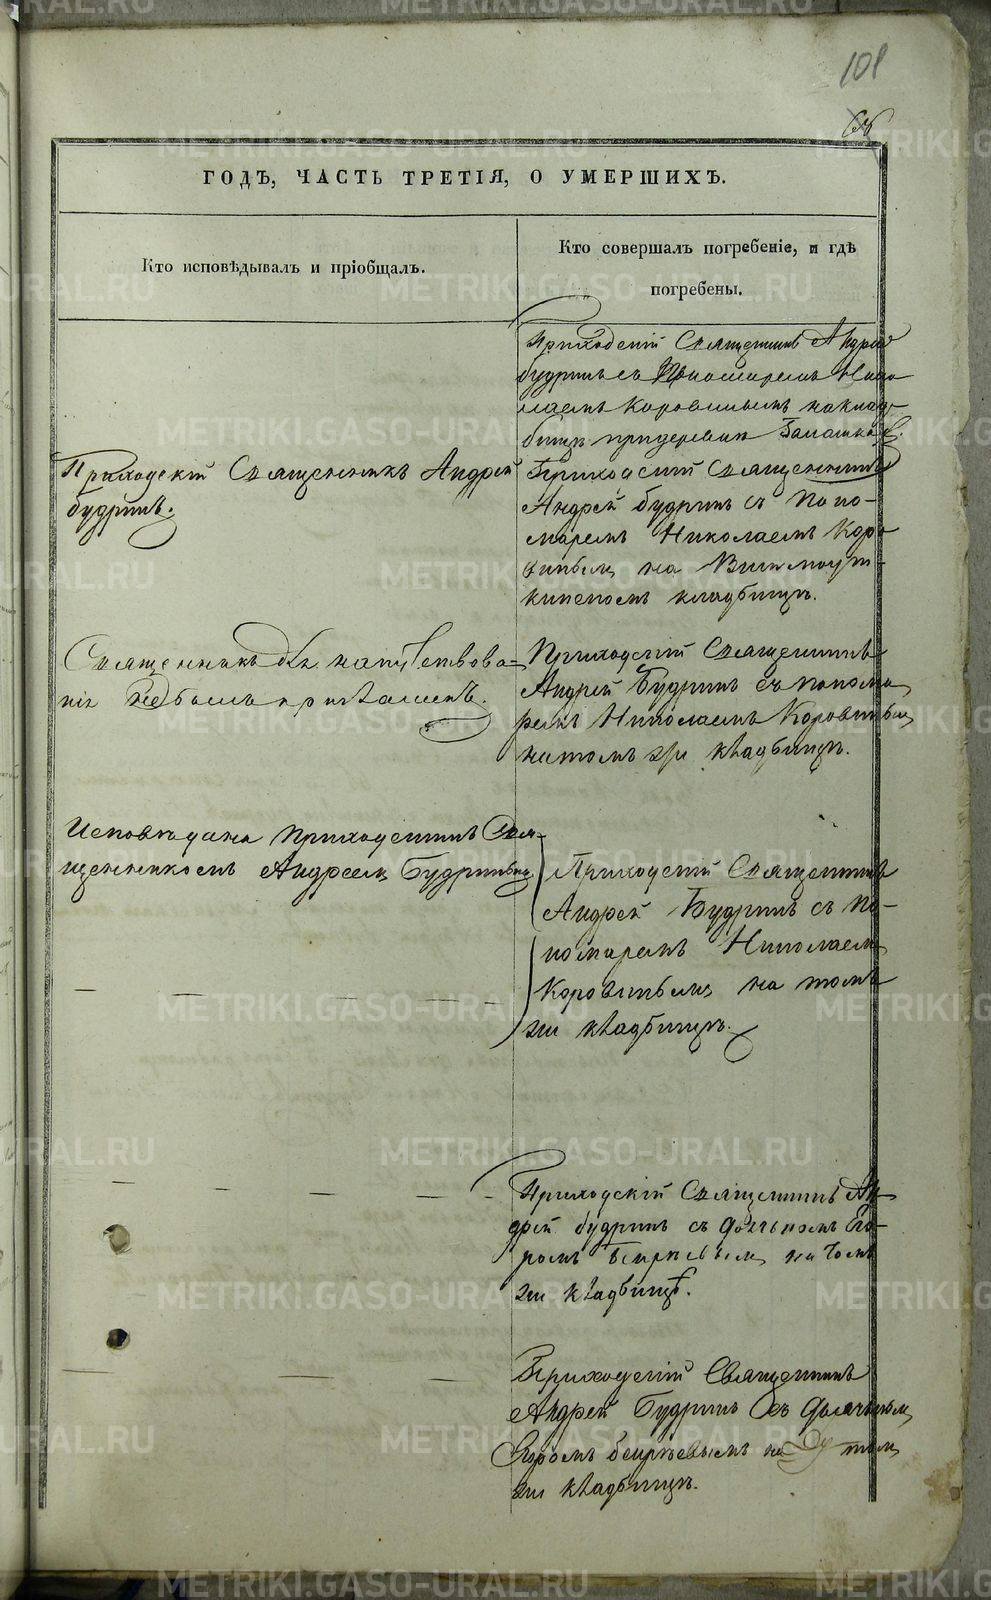 101
ГОДЪ, ЧАСТЬ ТРЕТІЯ, О УМЕРШИХЪ.
Кто исповѣдывалъ и пріобщалъ.
Кто совершалъ погребеніе, и гдѣ
погребены.
Приходскій Священникъ Андрей
Будринъ съ Пономаремъ Нико
лаемъ Коровинымъ на клад-
бищѣ при деревни
Приходскій Священникъ Андрей
Будринъ.
Приходскій Священникъ
Андрей Будринъ съ Поно-
маремъ Николаемъ Коро
винымъ на
кладбищѣ.
Священникъ для напутствова-
нія не былъ приглашенъ.
Приходскій Священникъ
Андрей Будринъ съ понома
ремъ Николаемъ Коровинымъ
на томъ же кладбищѣ.
Исповѣдана Приходскимъ Свя-
щенникомъ Андреемъ Будринымъ
Приходскій Священникъ
Андрей Будринъ съ По-
номаремъ Николаемъ
Коровинымъ на томъ
же кладбищѣ.
Приходскій Священникъ Ан-
дрей Будринъ съ дьячкомъ Его-
ромъ на томъ
же кладбищѣ.
Приходскій Священникъ
Андрей Будринъ съ дьячкомъ
Егоромъ на томъ
же кладбищѣ.
METRIKI.GASO-URAL.RU